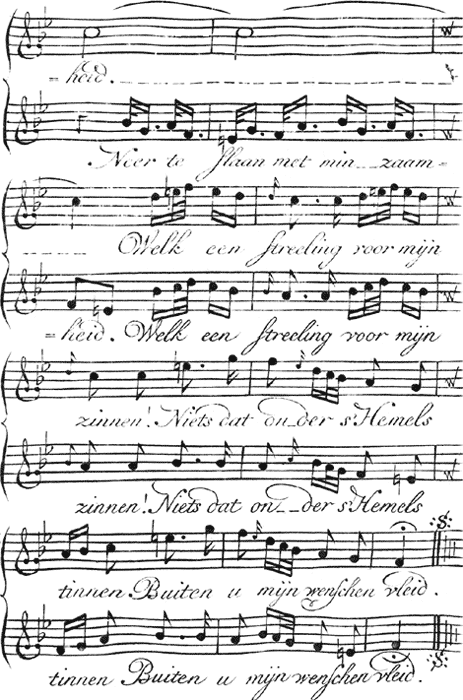 =heid.
Neer te slaan met min_zaam=
Welk een streeling voor mijn
=heid. Welk een streeling voor mijn
zinnen! Niets dat on_der s'Hemels
zinnen! Niets dat on_der s'Hemels
tinnen Buiten u mijn wenschen vleid.
tinnen Buiten u mijn wenschen vleid.